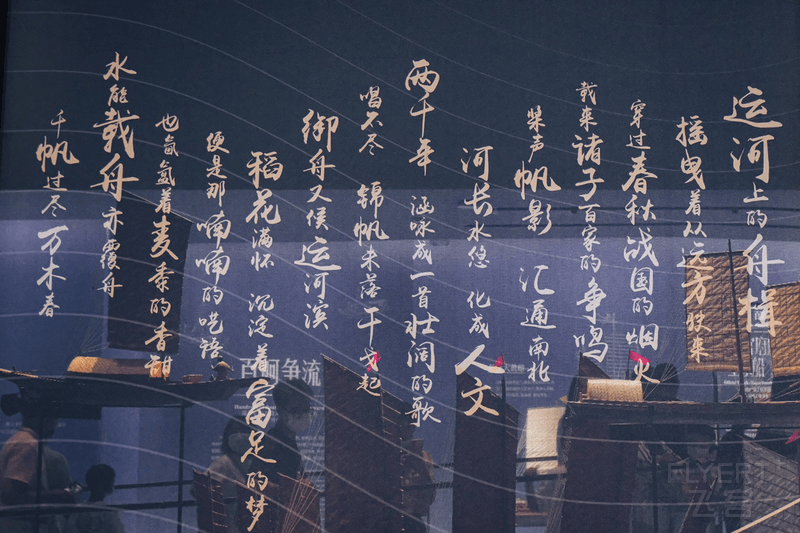 运河上的舟楫
摇曳着从远方驶来
穿过春秋战国的烟火
载来诸子百家的争鸣
桨声帆影 汇通南北
河长水悠 化成人文
两千年 涵咏成一首壮阔的歌
唱不尽 锦帆未落干戈起
御舟又候运河滨
稻花满怀 沉淀着富足的梦
便是那喃喃的呓语
也氤氲着麦黍的香甜
水能载舟亦覆舟
千帆过尽万木春
百舸争流
FLYERT